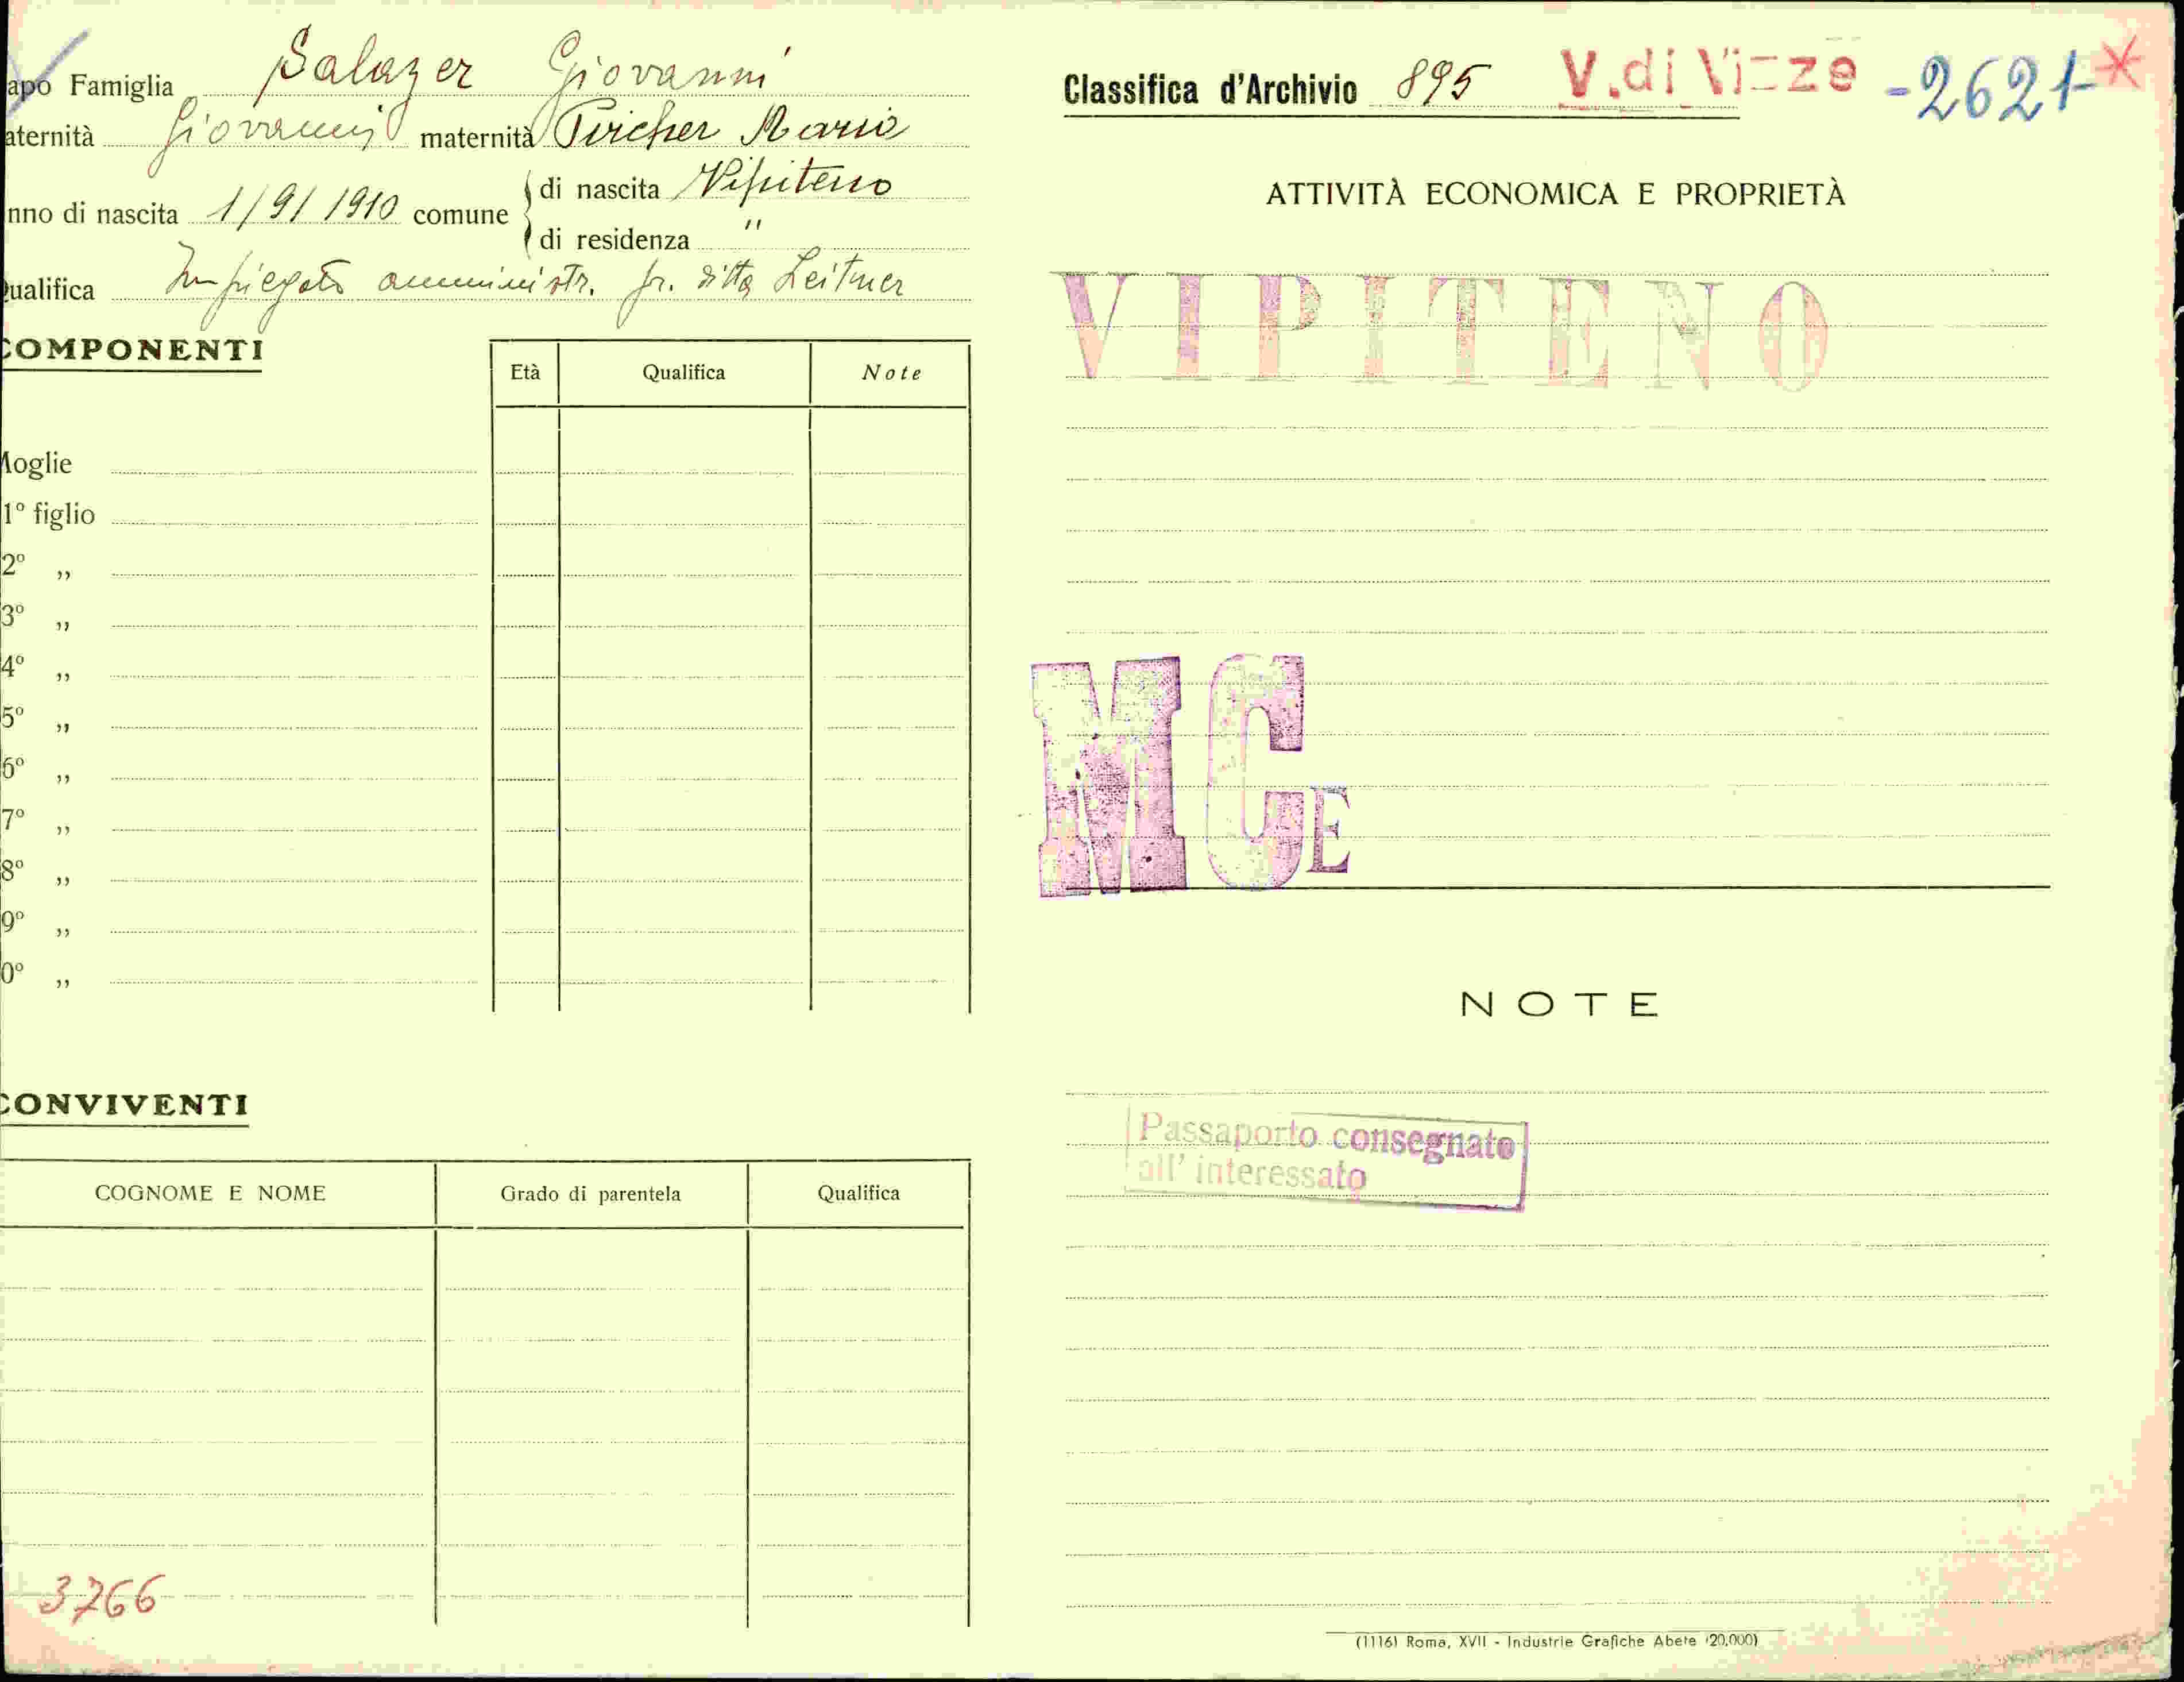 apo Famiglia Salazer Giovanni
aternità Giovanni maternità Pircher Maria
nno di nascita 1/9/1910 comune di nascita Vipiteno
di residenza "
ualifica Impiegato amministr. pr. ditta Leitner
COMPONENTI
Età Qualifica Note
Moglie
1º figlio
2º „
3º „
4º „
5º „
6º „
7º „
8º „
9º „
0º „
CONVIVENTI
COGNOME E NOME Grado di parentela Qualifica
3766
Classifica d'Archivio 895 V. di Vizze -2621- *
ATTIVITÀ ECONOMICA E PROPRIETÀ
VIPITENO
MCE
NOTE
Passaporto consegnato
all' interessato
(1116) Roma, XVII - Industrie Grafiche Abete (20,000)